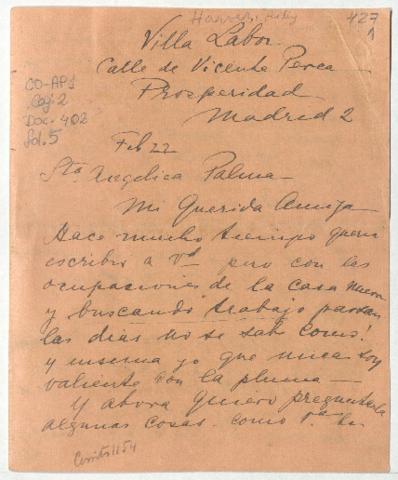 427
1
Villa Labor.
Calle de Vicente Perea
Prosperidad
Madrid 2
CO-AP1
Caj: 2
Doc. 402
fol. 5
Feb 22
Sta Angelica Palma—
Mi Querida Amiga—
Hace mucho tiempo queria
escribir a Vd pero con las
ocupaciones de la casa nueva
y buscando trabajo pasan
las dias no se sabe como!
y yo que nunca soy
valiente con la pluma—
Y ahora quiero preguntarla
algunas cosas. como